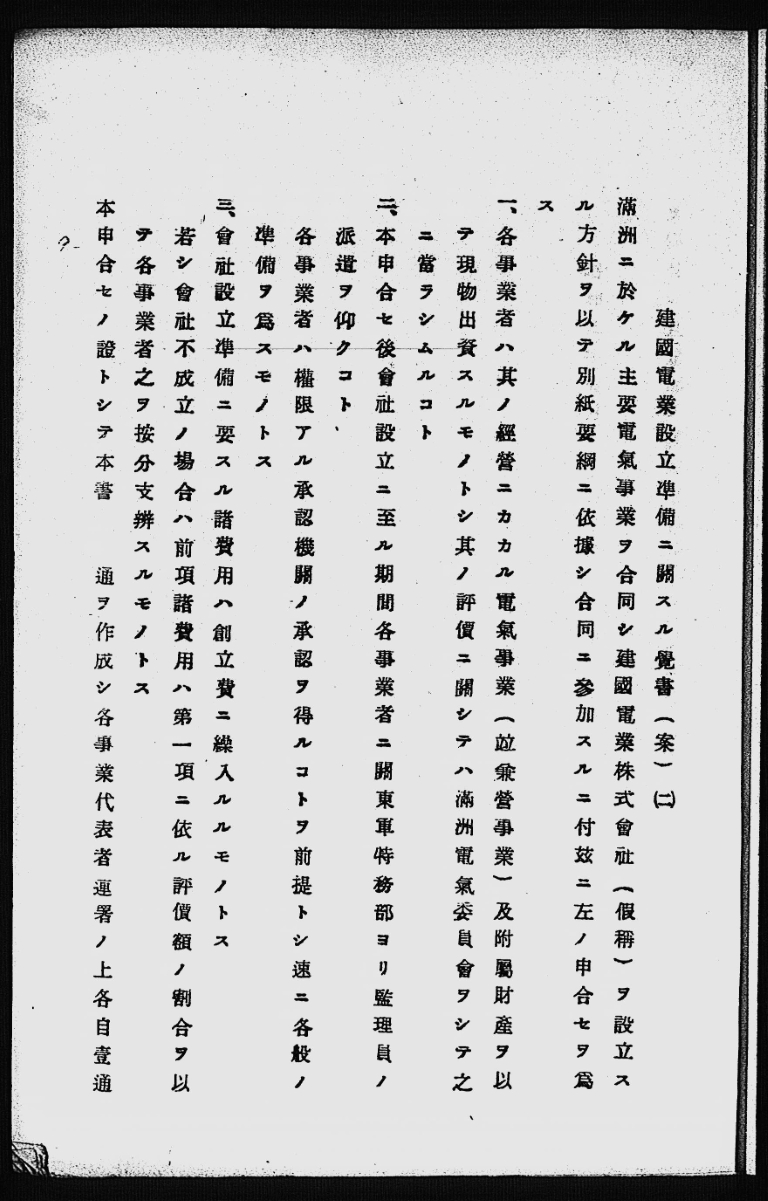 建國電業設立準備ニ關スル覺書（案）㈡
滿洲ニ於ケル主要電氣事業ヲ合同シ建國電業株式會社（假稱）ヲ設立ス
ル方針ヲ以テ別紙要綱ニ依據シ合同ニ參加スルニ付玆ニ左ノ申合セヲ爲
ス
一、各事業者ハ其ノ經營ニカカル電氣事業（竝兼營事業）及附屬財產ヲ以
テ現物出資スルモノトシ其ノ評價ニ關シテハ滿洲電氣委員會ヲシテ之
ニ當ラシムルコト
二、本申合セ後會社設立ニ至ル期間各事業者ニ關東軍特務部ヨリ監理員ノ
派遣ヲ仰クコト
各事業者ハ權限アル承認機關ノ承認ヲ得ルコトヲ前提トシ速ニ各般ノ
準備ヲ爲スモノトス
三、會社設立準備ニ要スル諸費用ハ創立費ニ繰入ルルモノトス
若シ會社不成立ノ場合ハ前項諸費用ハ第一項ニ依ル評價額ノ割合ヲ以
テ各事業者之ヲ按分支辨スルモノトス
本申合セノ證トシテ本書　　通ヲ作成シ各事業代表者連署ノ上各自壹通
?